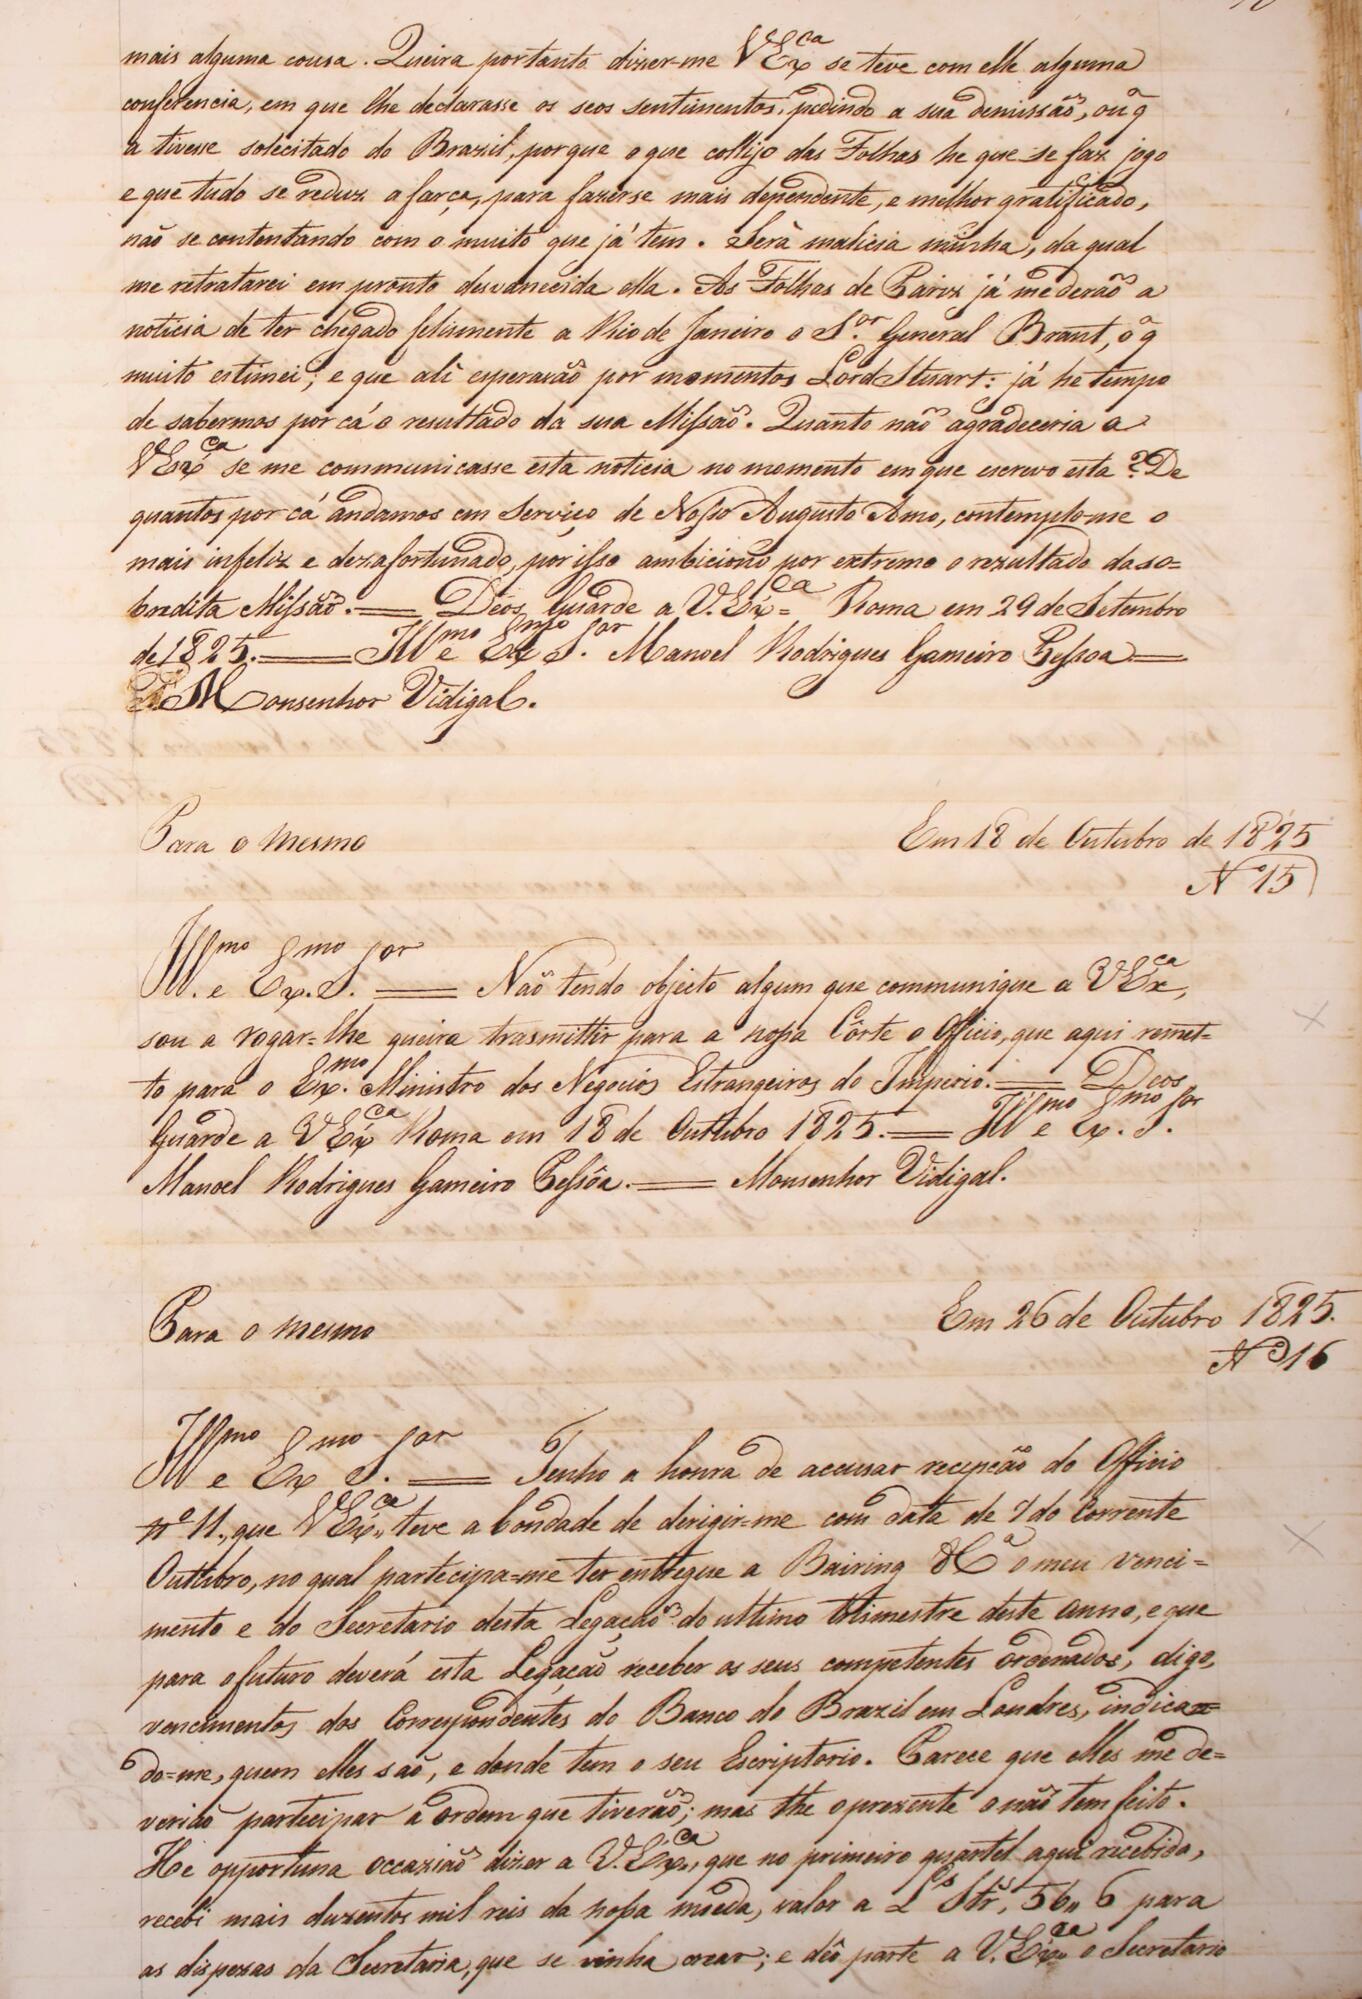 mais alguma cousa. Queira portanto dizer-me VExca se teve com elle alguma
conferencia, em que lhe declarasse os seos sentimentos, pedindo a sua demissão, ou q
a tivesse solecitado do Brazil, porque o que collijo das Folhas he que se faz jogo
e que tudo se reduz a farça, para fazerse mais dependente, e melhor gratificado,
não se contentando com o muito que já tem. Será malicia minha, da qual
me retratarei em prompto desvanecida ella. As Folhas de Pariz já me derão a
noticia de ter chegado felismente a Rio de Janeiro o Sor General Brant, o q
muito estimei; e que ali esperavão por momentos Lord Stuart: já he tempo
de sabermos por cá o resultado da sua Missão. Quanto não agradeceria a
VExca se me communicasse esta noticia no momento em que escrevo esta? De
quantos por cá andamos em Serviço de Nosso Augusto Amo, contemplo-me o
mais infeliz e dezafortunado, por isso ambiciono por extremo o rezultado da so=
bredita Missão.== Deos Guarde a V.Exca= Roma em 29 de Setembro
de 1825.== Illmo e Exmo Sor Manoel Rodrigues Gameiro Pessoa==
Monsenhor Vidigal.
Para o mesmo Em 18 de Outubro de 1825
No 15
Illmo e Exmo Sor == Não tendo objecto algum que communique a VExca,
sou a rogar=lhe queira trasmittir para a nossa Côrte o Officio, que aqui remet=
to para o Exmo Ministro dos Negocios Estrangeiros do Imperio.== Deos
Guarde a VExca Roma em 18 de Outubro 1825.== Illmo e Exmo Sor
Manoel Rodrigues Gameiro Pessôa.== Monsenhor Vidigal.
Para o mesmo Em 26 de Outubro 1825.
No 16
Illmo e Exmo Sor == Tenho a honra de accusar recepção do Officio
no 11., que VExca,, teve a bondade de derigir=me com data de 7 do Corrente
Outubro, no qual partecipa=me ter entregue a Bairing & Ca o meu venci=
mento e do Secretario desta Legação do ultimo trimestre deste anno, e que
para o futuro deverá esta Legação receber os seus competentes Ordenados, digo,
vencimentos dos Correspondentes do Banco do Brazil em Londres, indican=
do=me, quem elles são, e donde tem o seu Escriptorio. Parece que elles me de=
verião partecipar a ordem que tiverão; mas the o prezente o não tem feito.
He opportuna occazião dizer a V.Exca,, que no primeiro quartel aqui recebido,
recebi mais duzentos mil reis da nossa moeda, valor a Ls Strs. 56,, 6 para
as dispezas da Secretaria, que se vinha crear; e dêo parte a V.Exca o Secretario